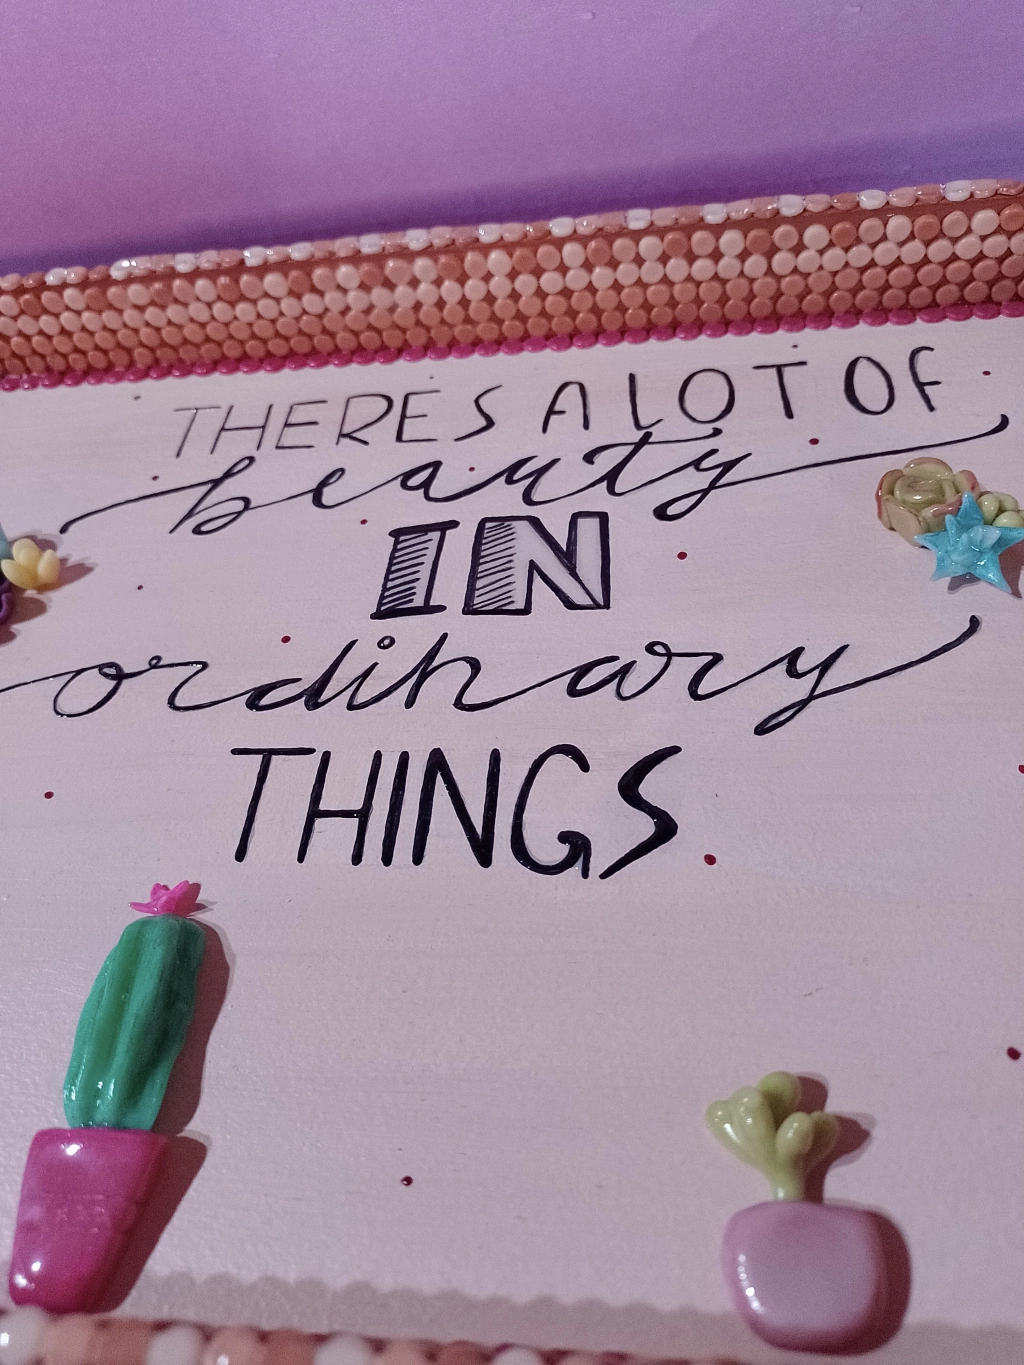 THERES A LOT OF
beauty
IN
ordinary
THINGS